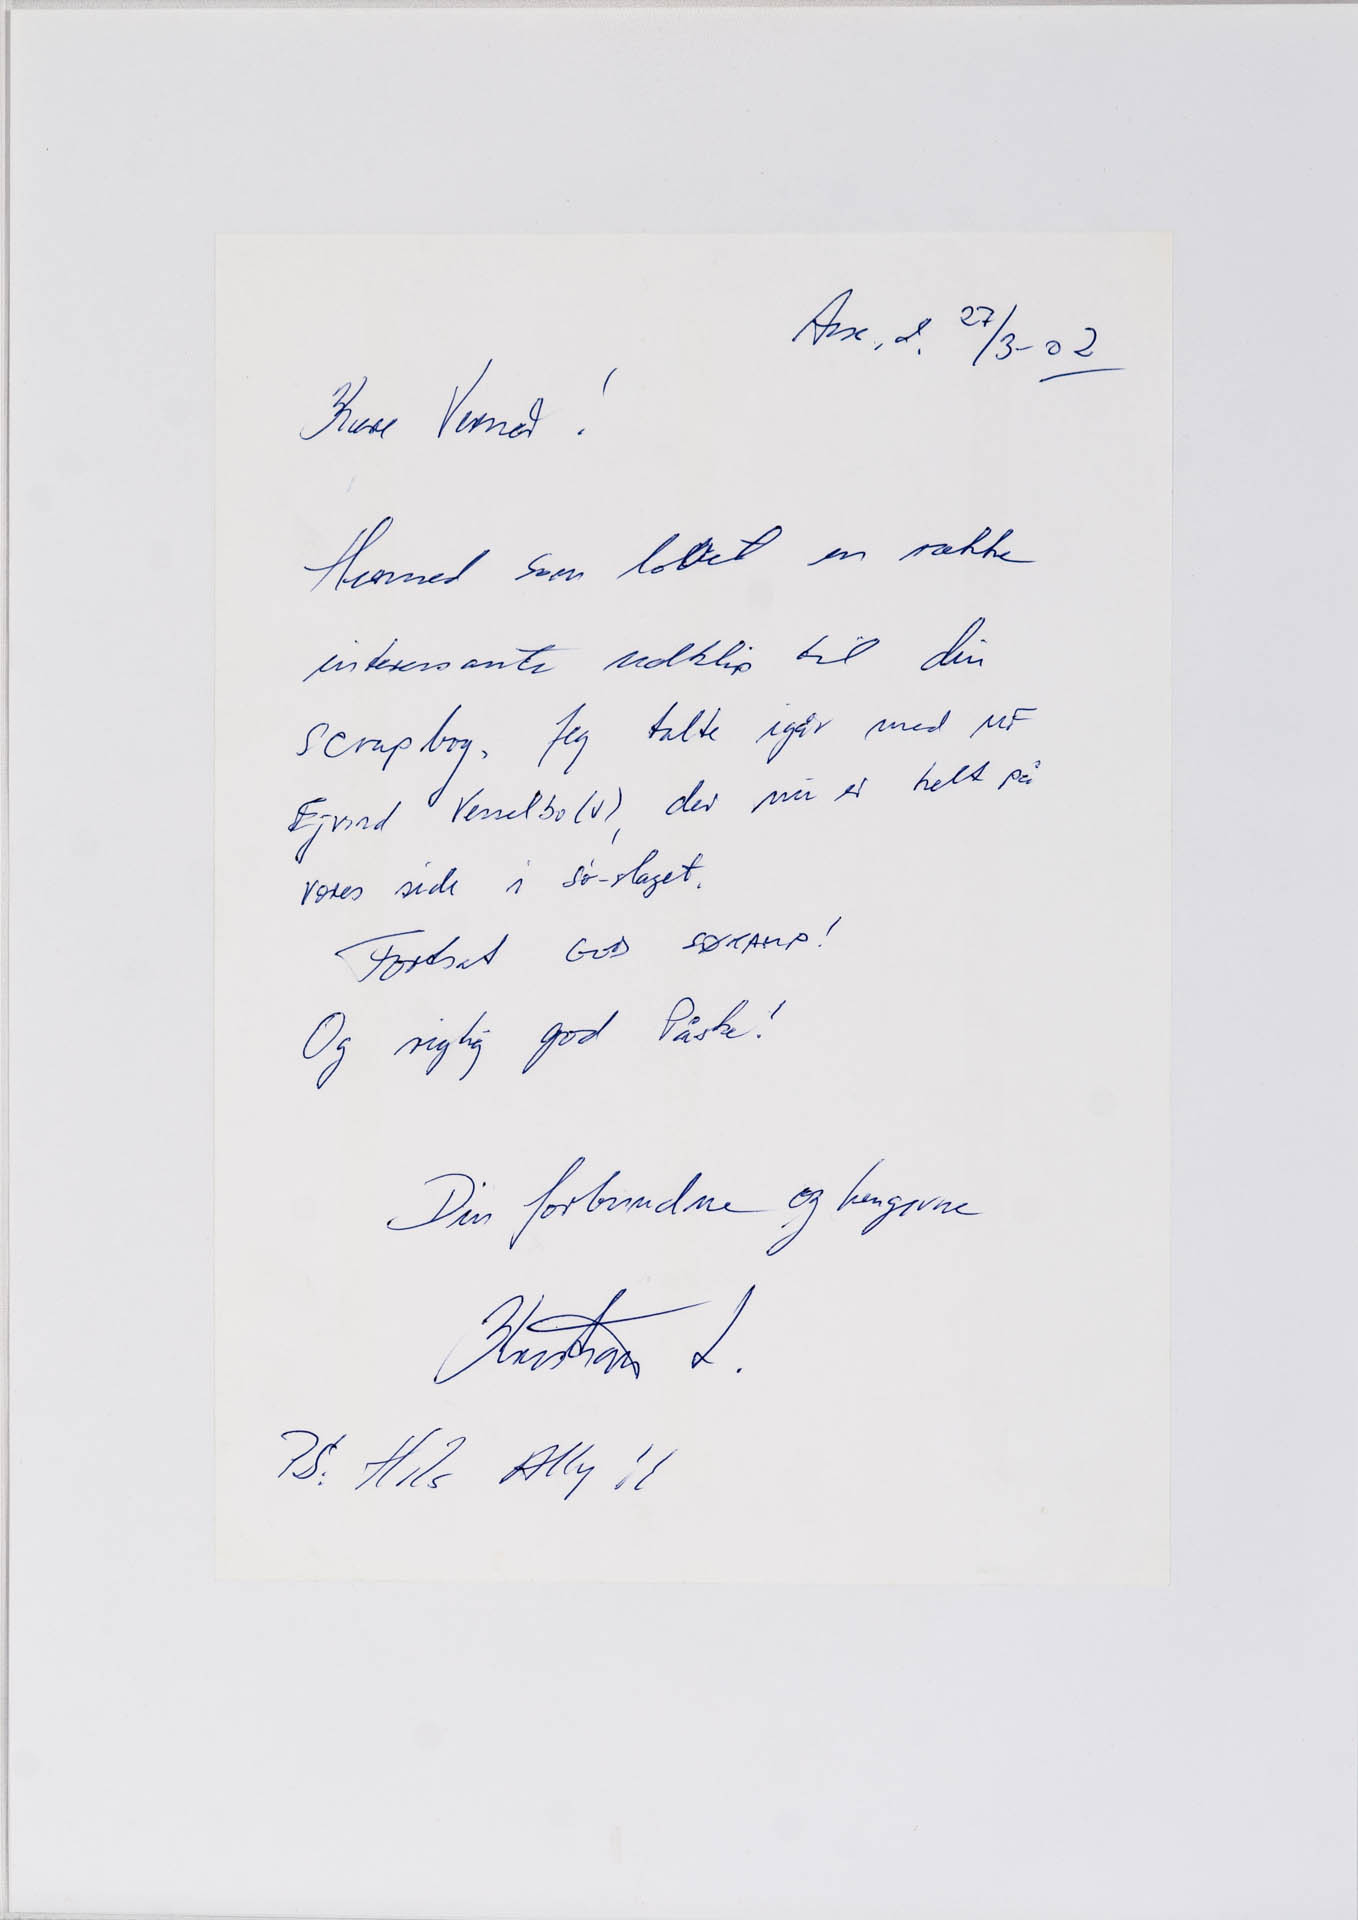 Asx., d. 27/3-02
Kære Verner!
Hermed som lovet en række
interessante udklip til din
scrapbog. Jeg talte igår med MF
Ejvind Vesselbo(V), der nu er helt på
vores side i Sø-slaget.
Fortsat GOD SØKAMP!
Og rigtig god Påske!
Din forbundne og hengivne
Kristian L.
PS. Hils Ally!!